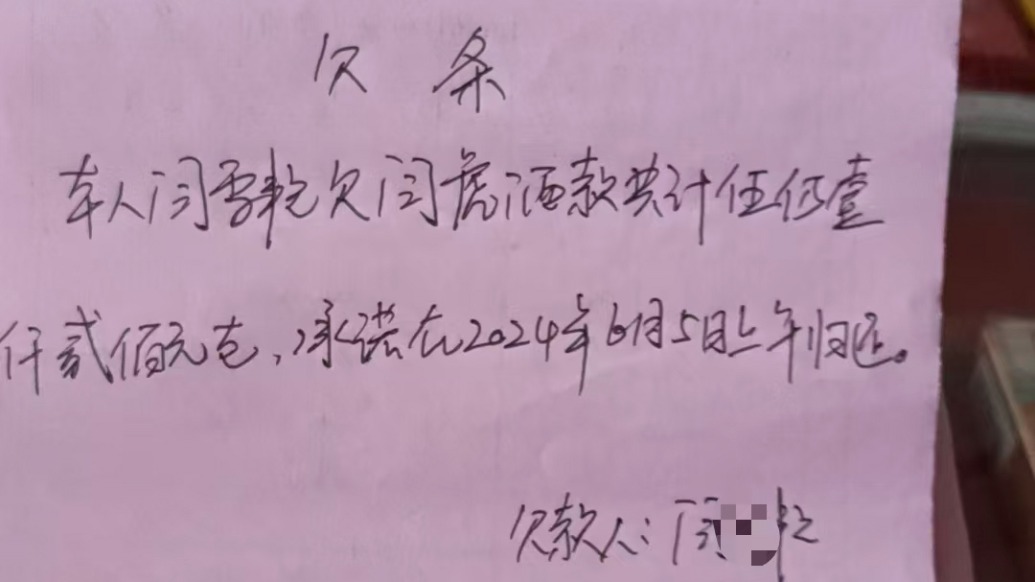 欠 条
本人闫雪乾欠闫虎酒款共计伍仟壹
仟贰佰元包,承诺在2024年6月5日上午归还。
欠款人:闫